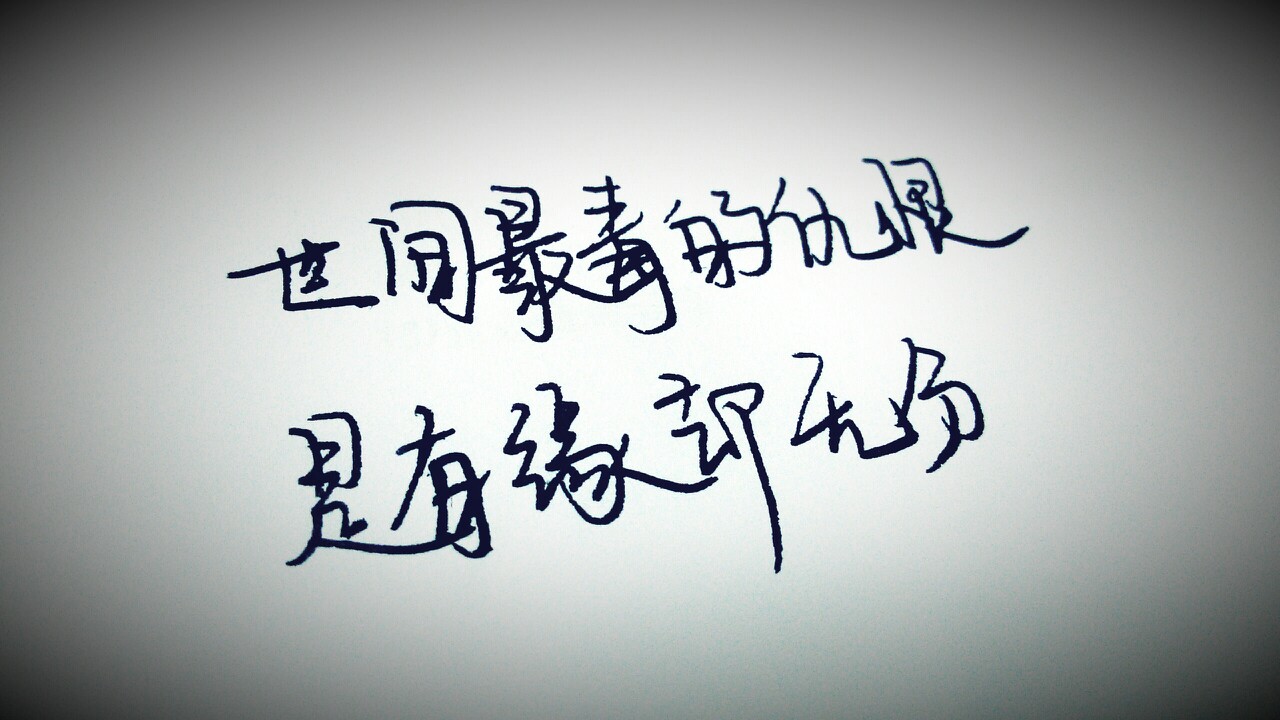 世间最毒的仇恨
是有缘却无份